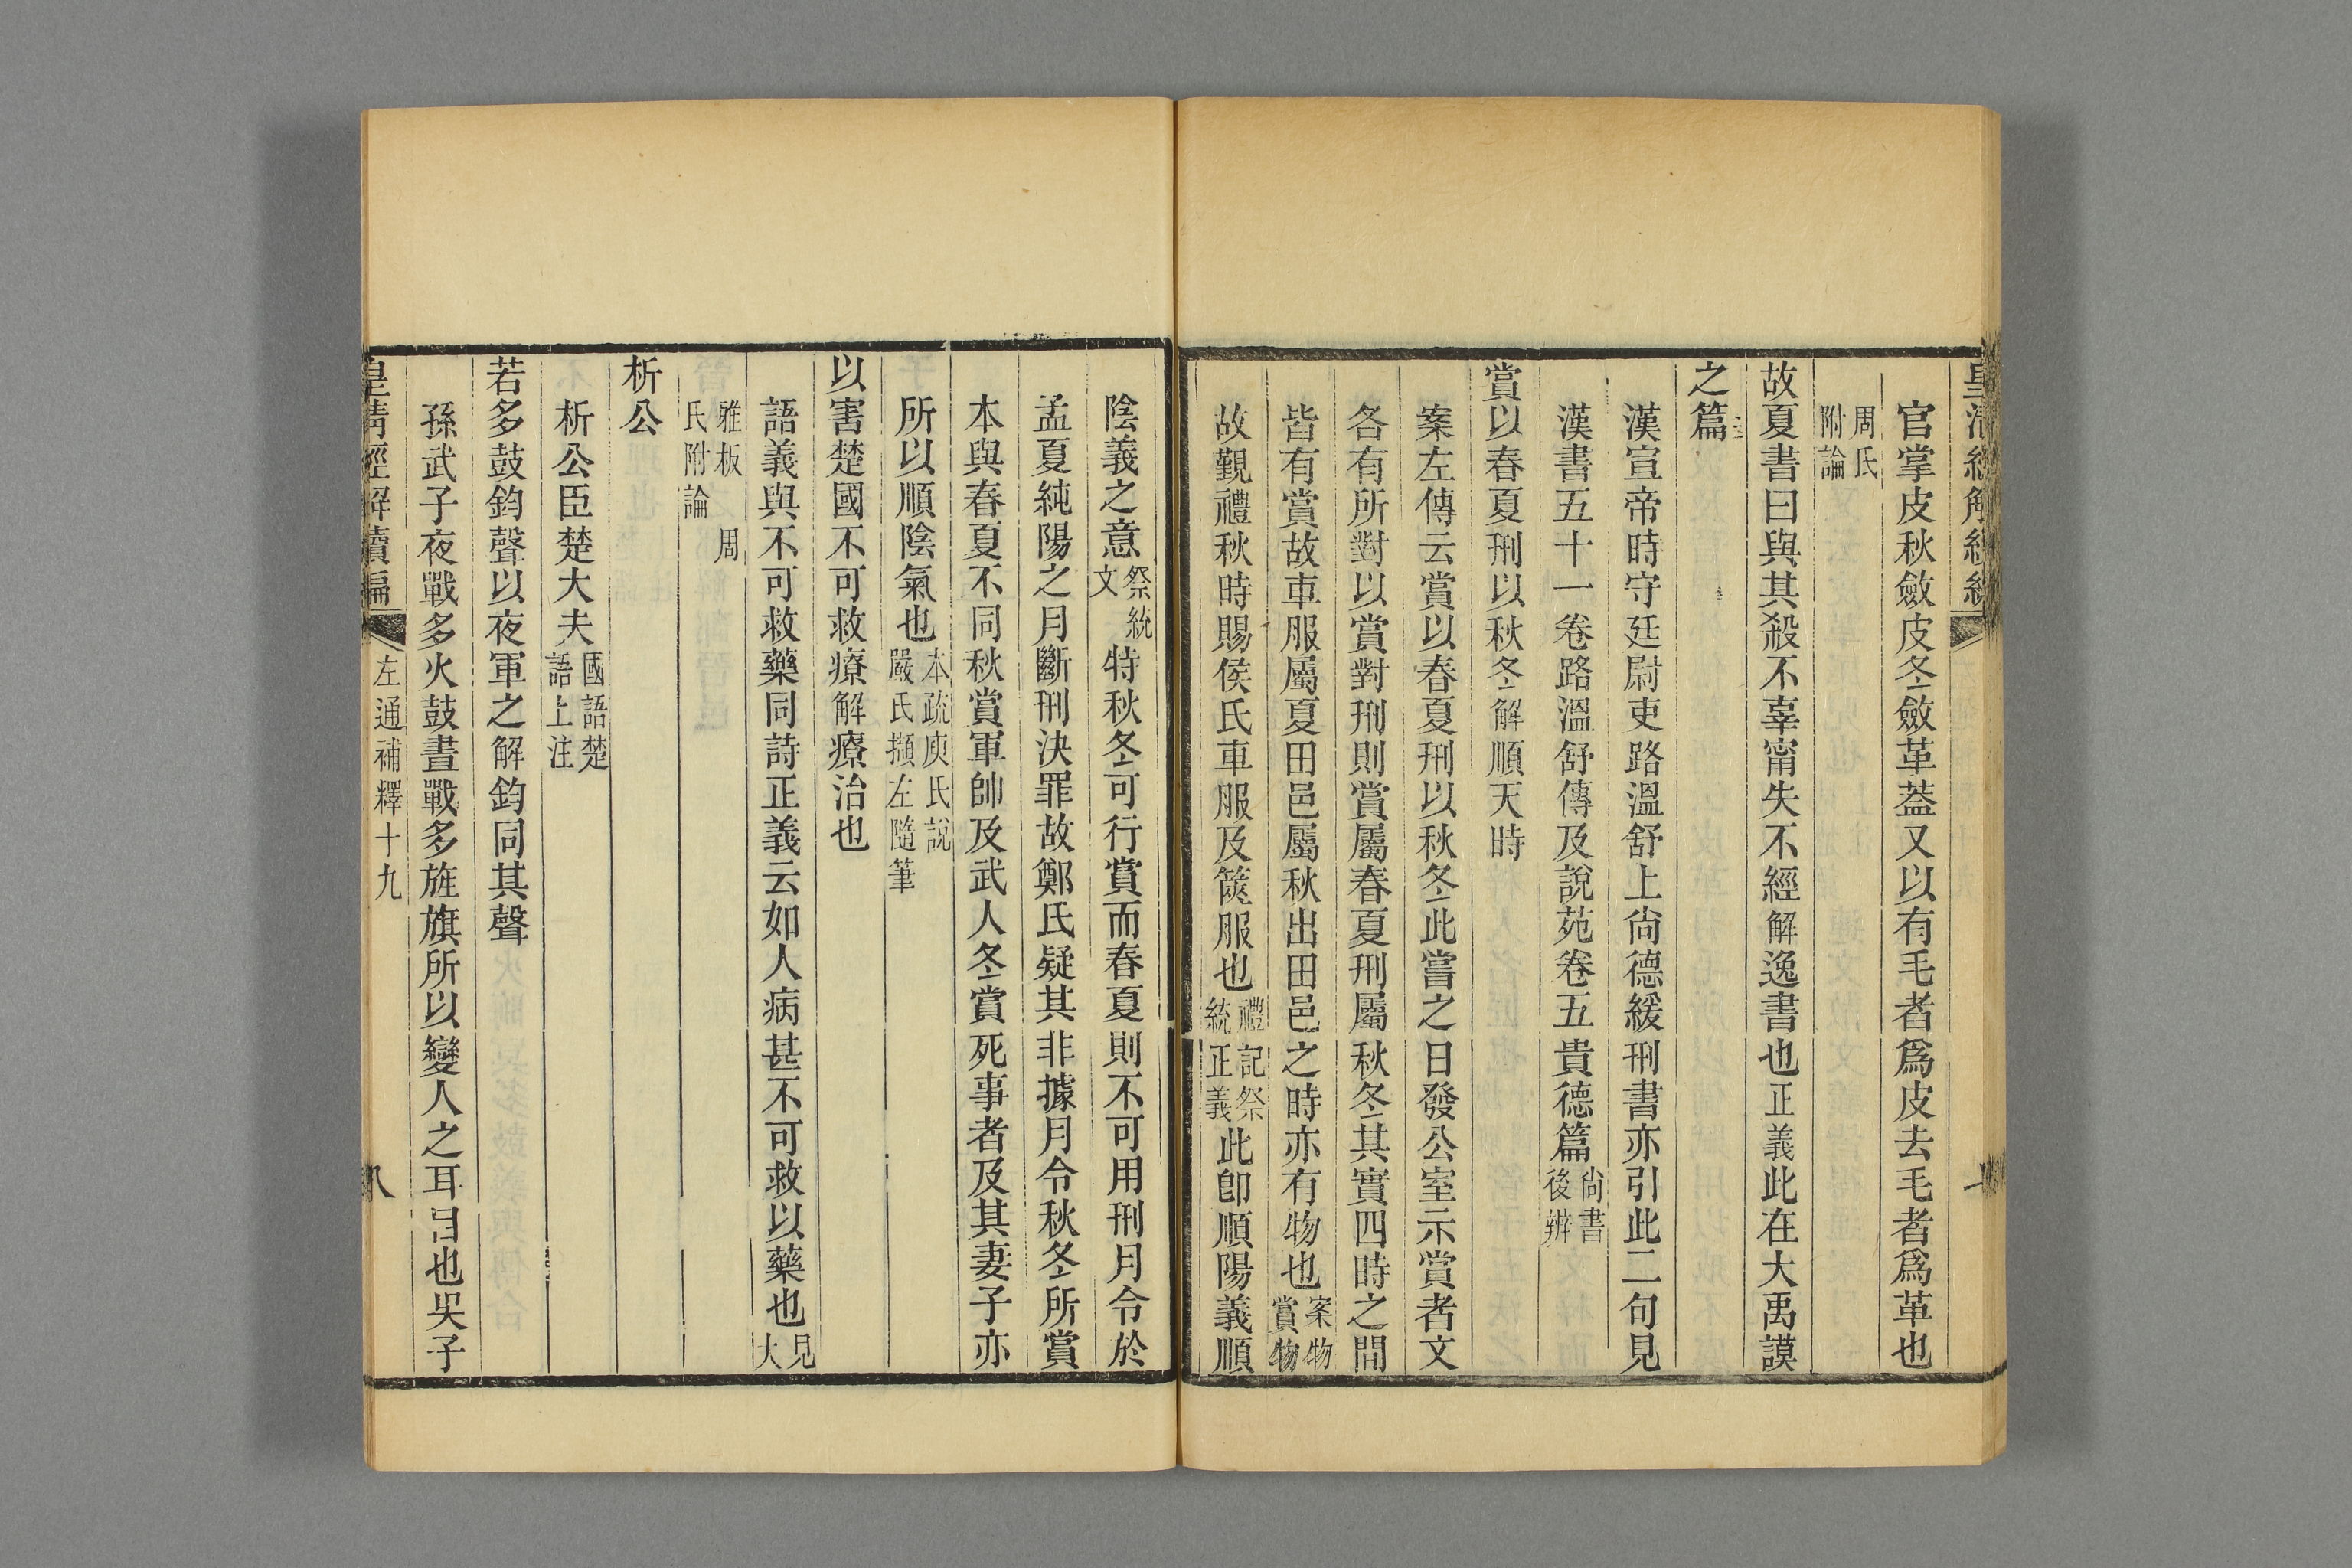 官掌皮秋斂皮冬斂革蓋又以有毛者爲皮去毛者爲革也
周氏
附論
故夏書曰與其殺不辜寧失不經解逸書也正義此在大禹謨
之篇
漢宣帝時守廷尉吏路溫舒上尙德緩刑書亦引此二句見
漢書五十一卷路溫舒傳及說苑卷五貴德篇尙書
後辨
賞以春夏刑以秋冬解順天時
案左傳云賞以春夏刑以秋冬此嘗之日發公室示賞者文
各有所對以賞對刑則賞屬春夏刑屬秋冬其實四時之間
皆有賞故車服屬夏田邑屬秋出田邑之時亦有物也案物
賞物
故覲禮秋時賜侯氏車服及篋服也禮記祭
統正義此卽順陽義順
陰義之意祭統
文特秋冬可行賞而春夏則不可用刑月令於
孟夏純陽之月斷刑決罪故鄭氏疑其非據月令秋冬所賞
本與春夏不同秋賞軍帥及武人冬賞死事者及其妻子亦
所以順陰氣也本疏庾氏說
嚴氏擷左隨筆
以害楚國不可救療解療治也
語義與不可救藥同詩正義云如人病甚不可救以藥也見
大
雅板 周
氏附論
析公
析公臣楚大夫國語楚
語上注
若多鼓鈞聲以夜軍之解鈞同其聲
孫武子夜戰多火鼓晝戰多旌旗所以變人之耳目也吳子
皇淸經解續編 左通補釋十九 八